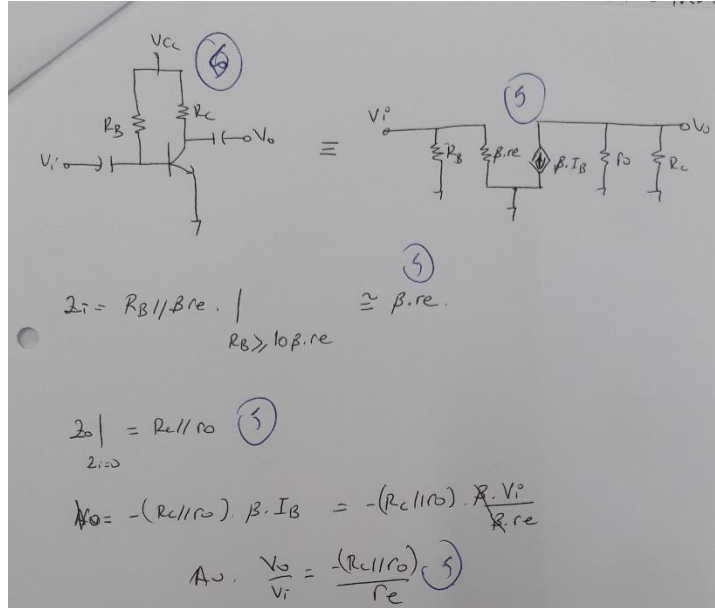 Vcc
6
RB
Rc
Vi
Vo
≡
5
Vi
RB
β.re
β.IB
ro
Rc
Vo
5
Zi = RB//βre. | RB≥10β.re ≅ β.re.
Zo| Zi=0 = Rc//ro 5
Vo = -(Rc//ro). β.IB = -(Rc//ro). β.Vi / β.re
Av. Vo/Vi = -(Rc//ro) / re 5